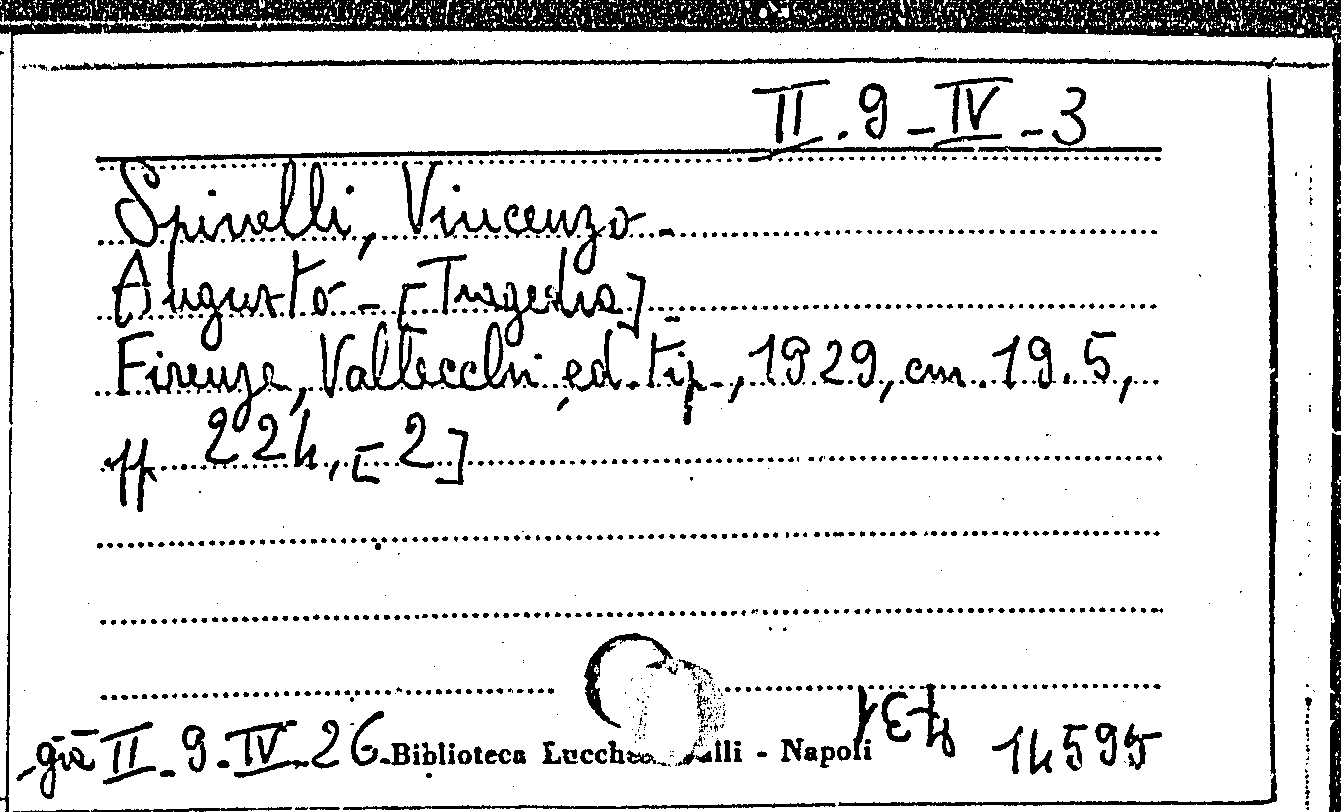 II.9-IV-3
Spinelli, Vincenzo -
Augusto - [Tragedia]
Firenze, Vallecchi, ed. tip., 1929, cm. 19.5,
pp 224, [2]
già II-9-IV-26 Biblioteca Lucchesi Palli - Napoli
14595